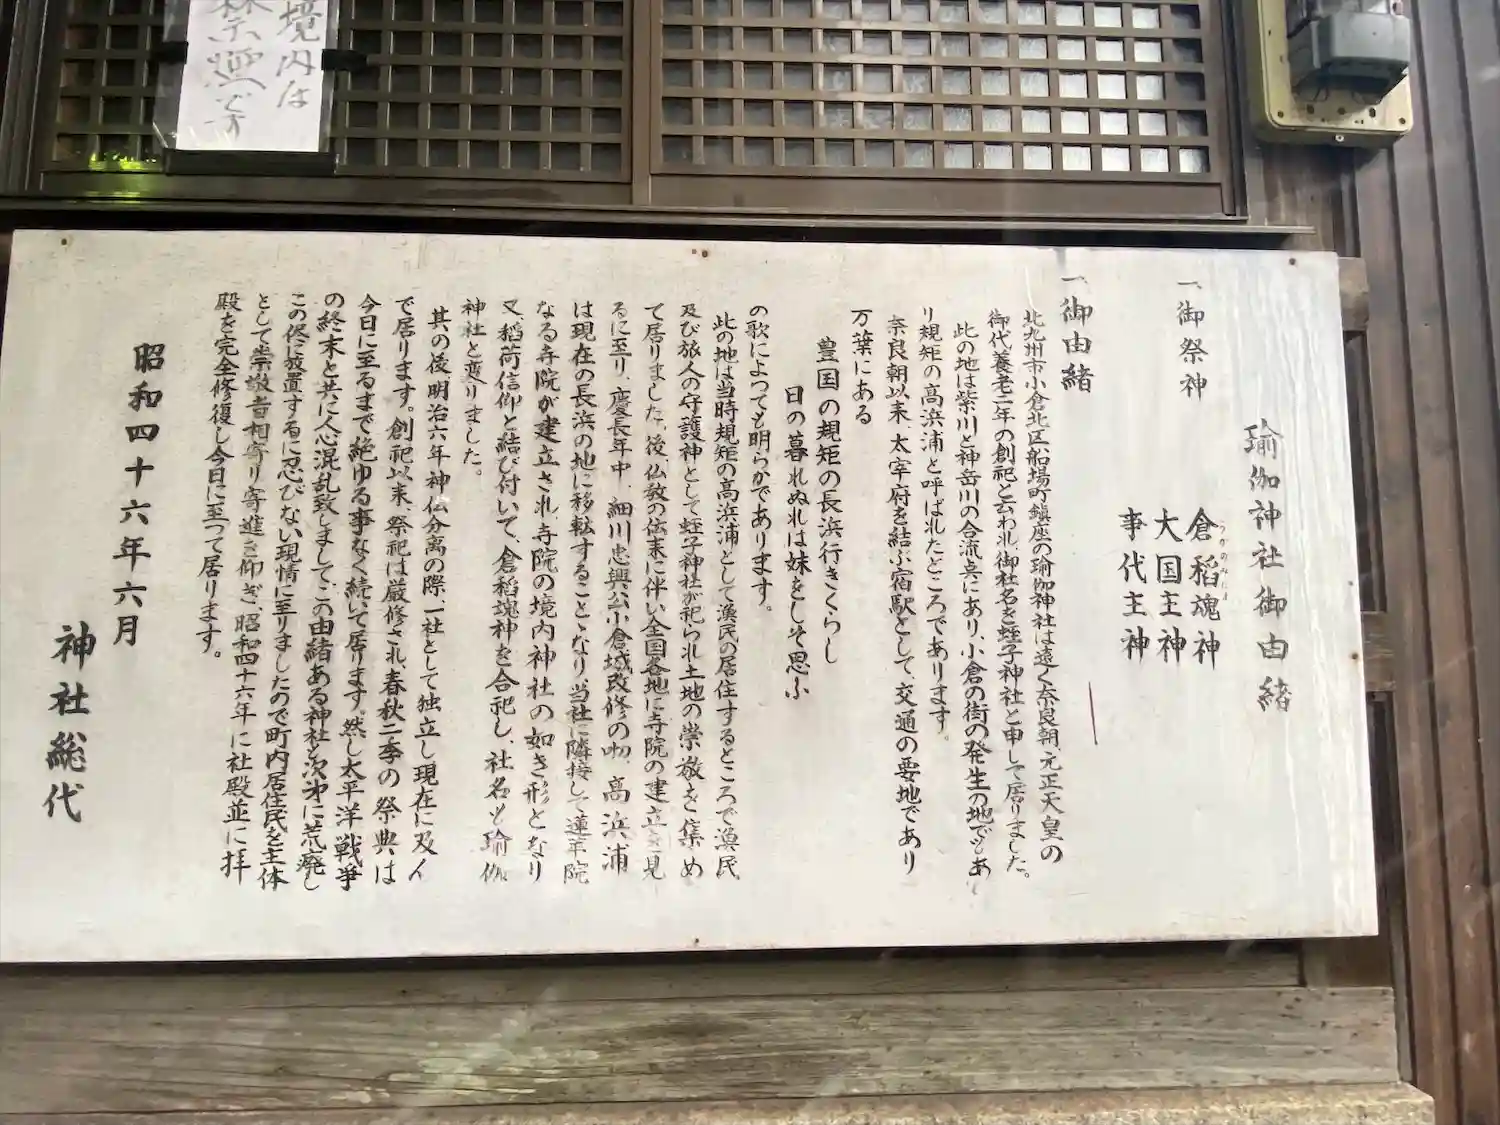 境内は
禁煙です
瑜伽神社御由緒
一、御祭神
倉稲魂神
うかのみたま
大国主神
事代主神
一、御由緒
北九州市小倉北区船場町鎮座の瑜伽神社は遠く奈良朝、元正天皇の
御代養老二年の創祀と云われ、御社名を蛭子神社と申して居りました。
此の地は紫川と神岳川の合流点にあり、小倉の街の発生の地でもあ
り規矩の高浜浦と呼ばれたところであります。
奈良朝以来、太宰府を結ぶ宿駅として、交通の要地であり
万葉にある
豊国の規矩の長浜行きくらし
日の暮れぬれは妹をしそ思ふ
の歌によつても明らかであります。
此の地は当時規矩の高浜浦として漁民の居住するところで漁民
及び旅人の守護神として蛭子神社が祀られ土地の崇敬を集め
て居りました。後仏教の伝来に伴い全国各地に寺院の建立を見
るに至り、慶長年中、細川忠興公小倉城改修の砌、高浜浦
は現在の長浜の地に移転することゝなり、当社に隣接して蓮華院
なる寺院が建立され、寺院の境内神社の如き形となり
又、稲荷信仰と結び付いて、倉稲魂神を合祀し、社名も瑜伽
神社と変りました。
其の後明治六年神仏分離の際、一社として独立し現在に及ん
で居ります。創祀以来、祭祀は厳修され、春秋二季の祭典は
今日に至るまで絶ゆる事なく続いて居ります。然し太平洋戦争
の終末と共に人心混乱致しまして、この由緒ある神社も次第に荒廃し
この侭放置するに忍びない現情に至りましたので町内居住民を主体
として崇敬者相寄り寄進を仰ぎ、昭和四十六年に社殿並に拝
殿を完全修復し今日に至つて居ります。
昭和四十六年六月
神社総代